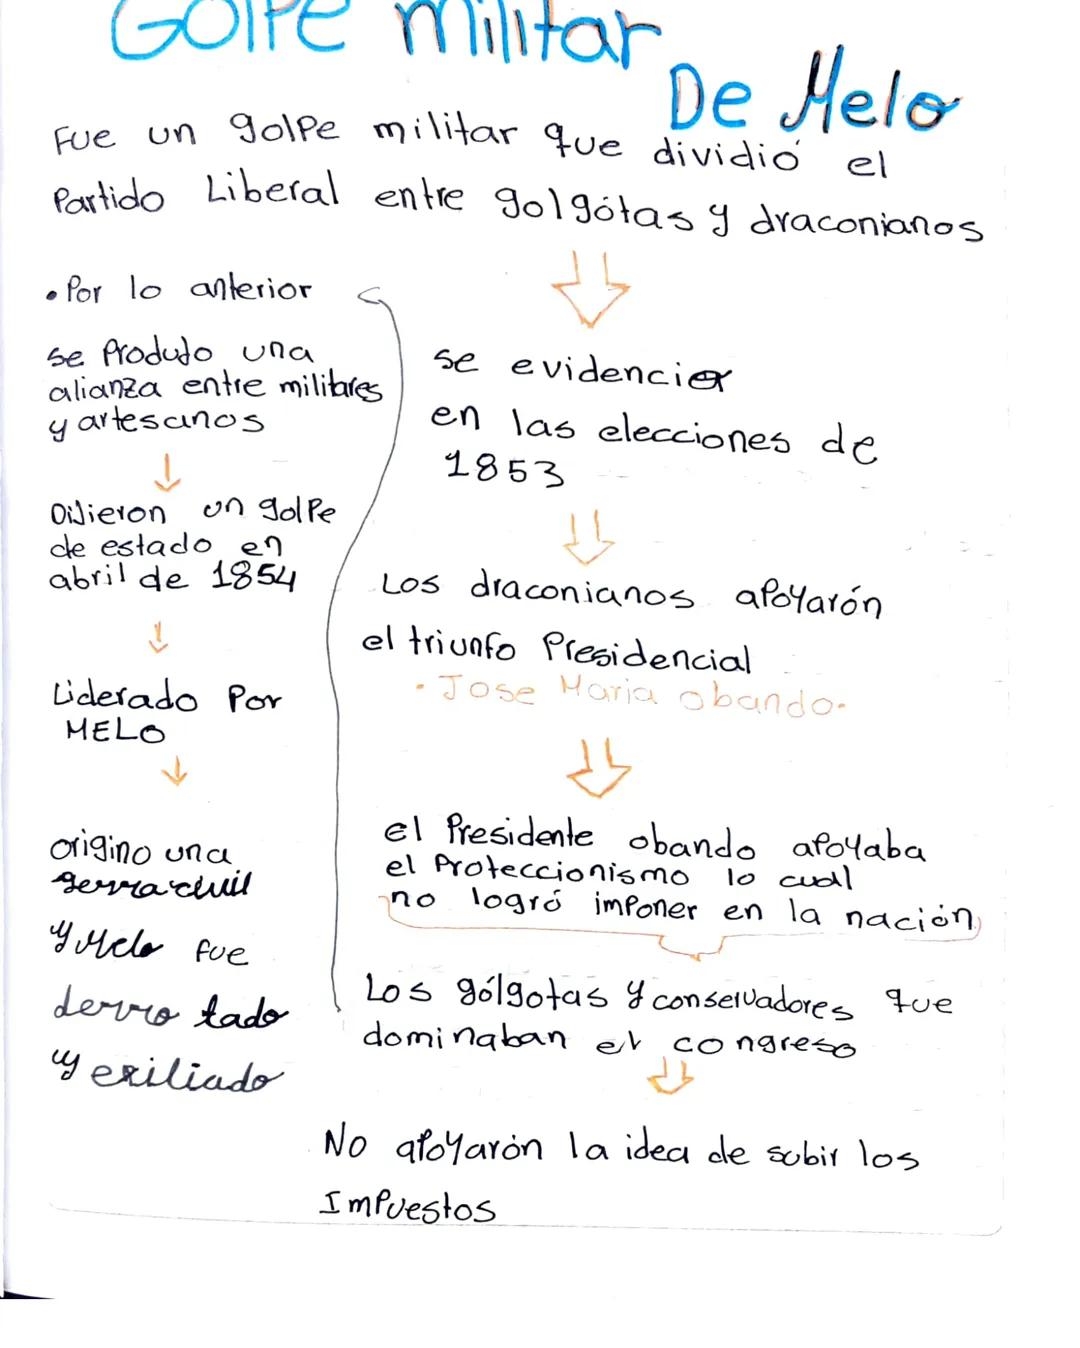 Golpe militar
De Melo
Fue un golpe militar que dividió el
Partido Liberal entre golgótas y draconianos
se evidencier
en las elecciones de
1853
Los draconianos apoyarón
el triunfo Presidencial
• Jose Maria obando.
el Presidente obando apoyaba
el Proteccionismo lo cual
no logró imponer en la nación
Los gólgotas y conservadores que
dominaban el congreso
No apoyarón la idea de subir los
Impuestos
• Por lo anterior
se Produjo una
alianza entre militares
y artesanos
Dijieron un golpe
de estado en
abril de 1854
Liderado Por
MELO
origino una
gerra civil
y Melo fue
derro tado
y exiliado